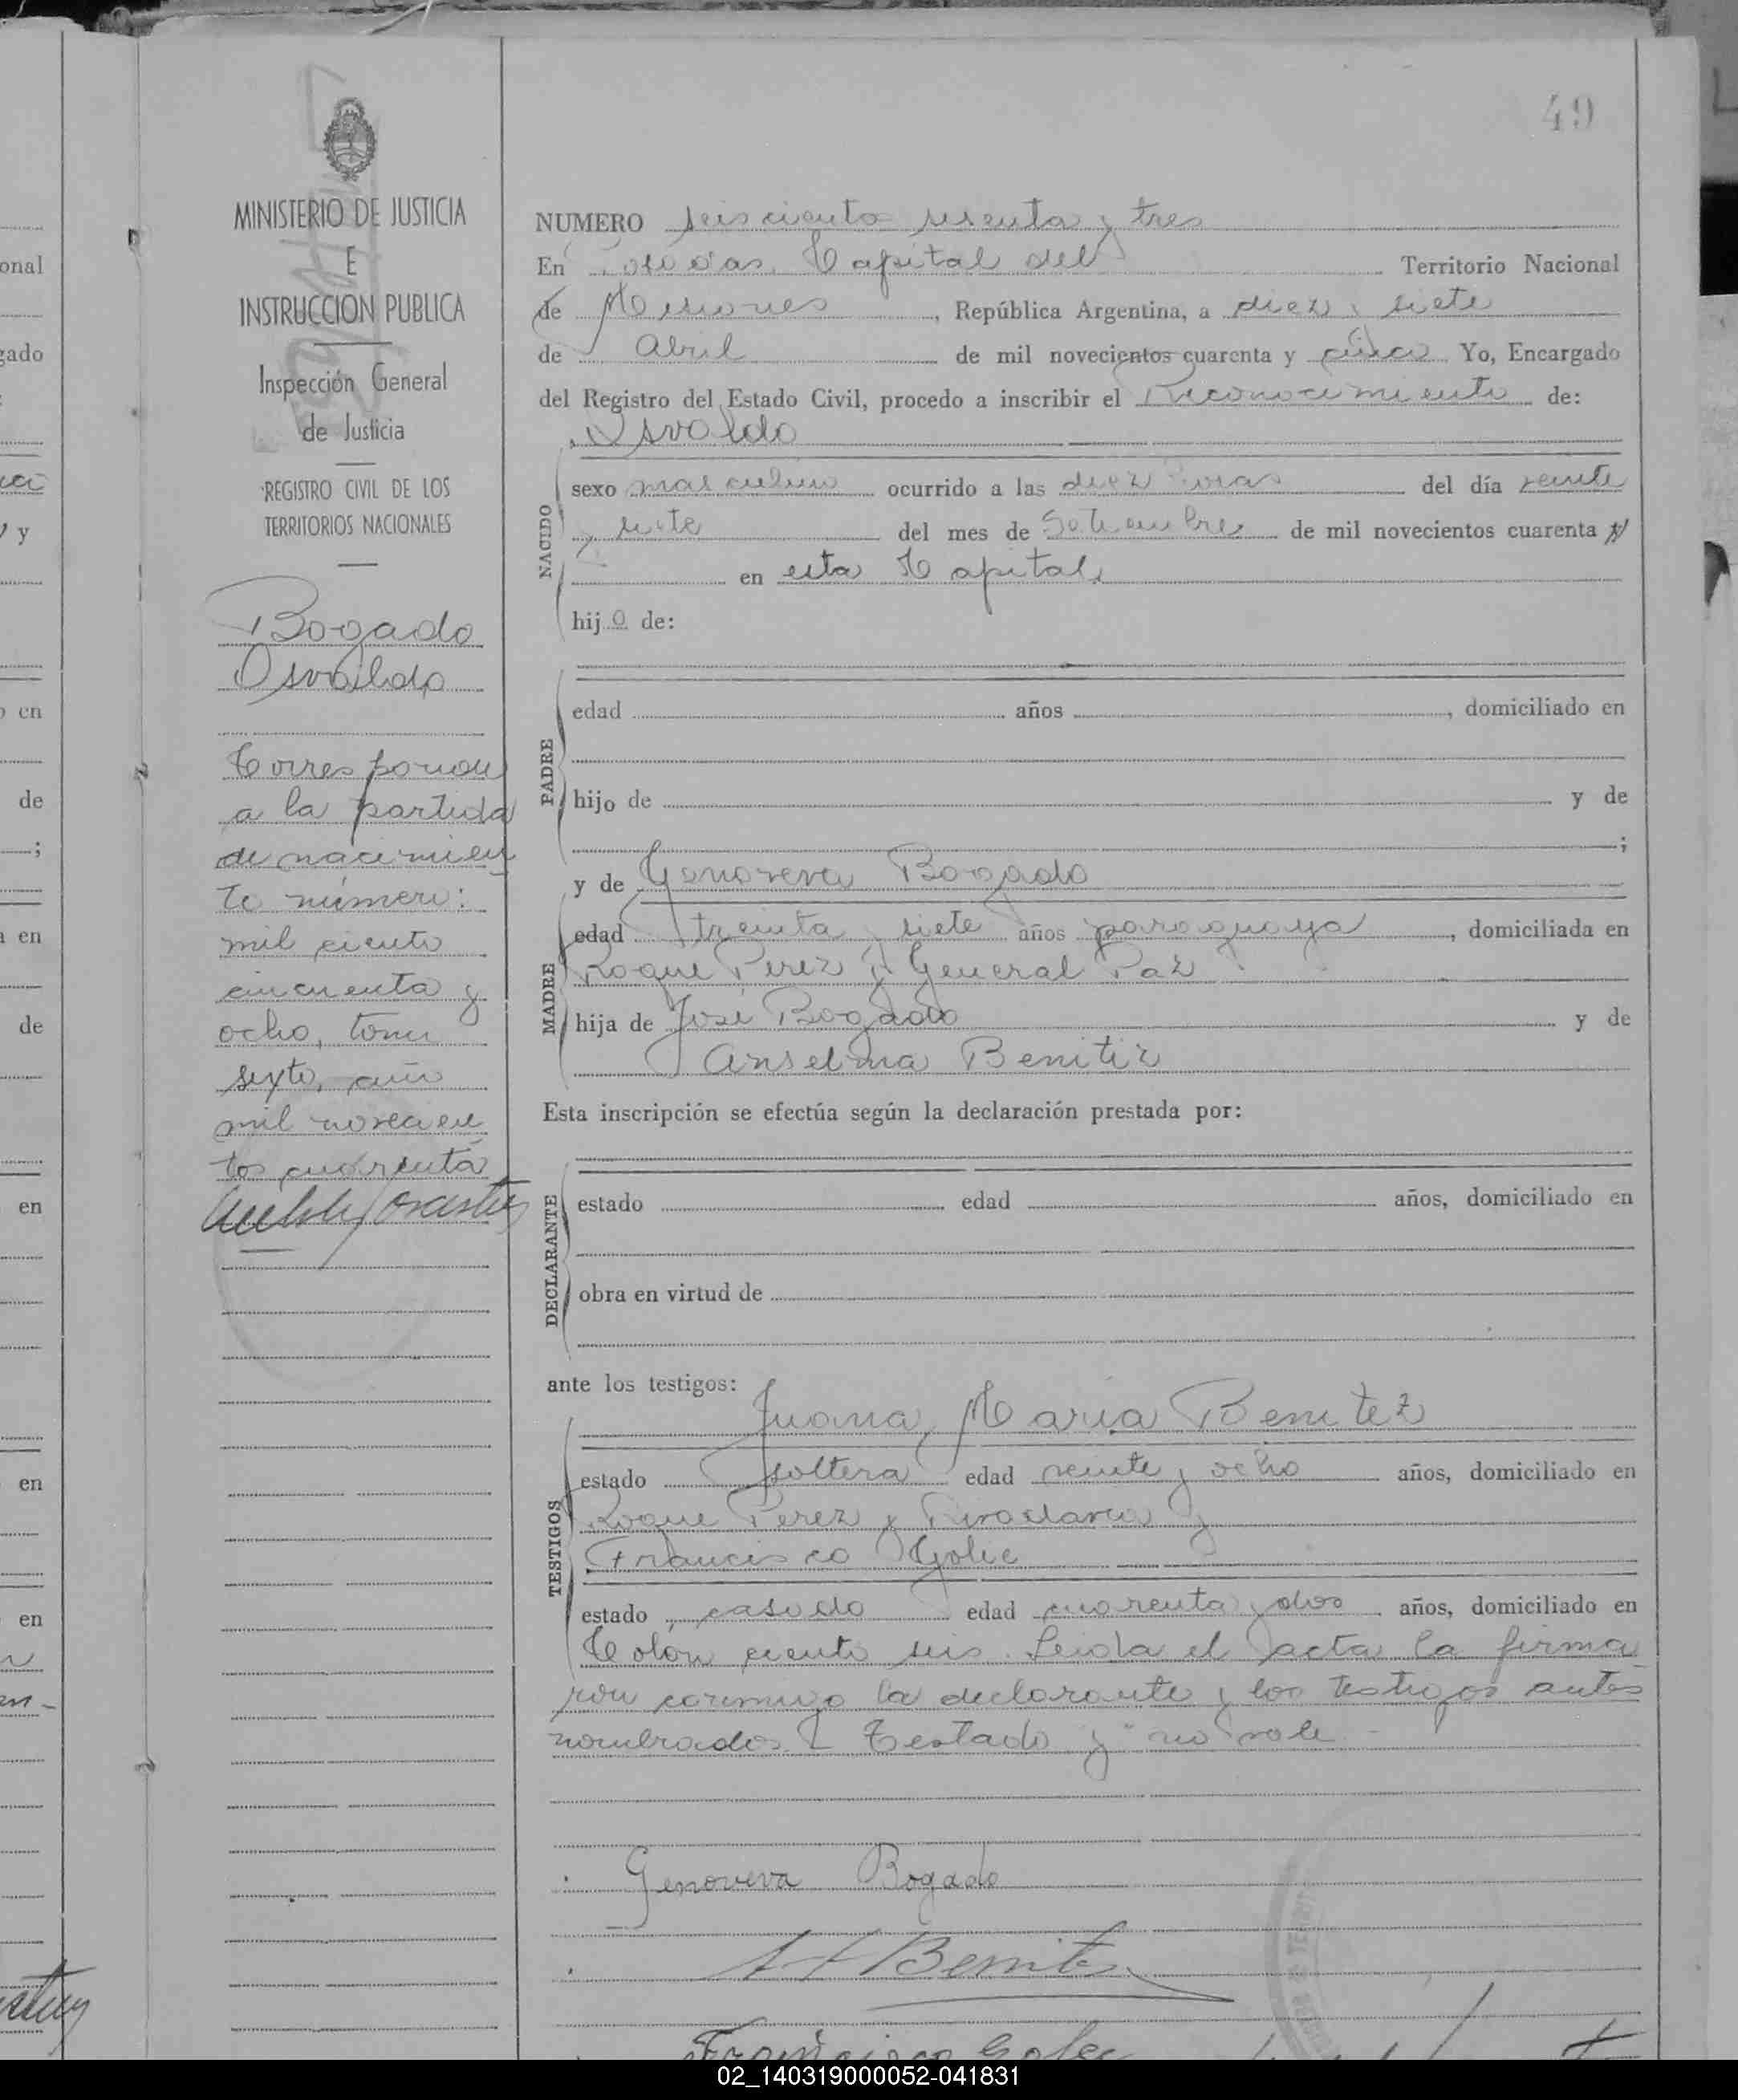 49
MINISTERIO DE JUSTICIA
E
INSTRUCCION PUBLICA
Inspección General
de Justicia
REGISTRO CIVIL DE LOS
TERRITORIOS NACIONALES
Bogado
Osvaldo
Corresponde
a la partida
de nacimien
to número:
mil ciento
cincuenta y
ocho, tomo
sexto, año
mil novecien
tos cuarenta
NUMERO seiscientos sesenta y tres
En Posadas, Capital del Territorio Nacional
de Misiones, República Argentina, a diez y siete
de Abril de mil novecientos cuarenta y cinco Yo, Encargado
del Registro del Estado Civil, procedo a inscribir el Reconocimiento de:
Osvaldo
NACIDO
sexo masculino ocurrido a las diez horas del día veinte
y siete del mes de Setiembre de mil novecientos cuarenta y
en esta Capital,
hijo de:
PADRE
edad años , domiciliado en
hijo de y de
;
y de Genoveva Bogado
MADRE
edad treinta y siete años paraguaya, domiciliada en
Roque Perez y General Paz
hija de José Bogado y de
Anselma Benitez
Esta inscripción se efectúa según la declaración prestada por:
DECLARANTE
estado edad años, domiciliado en
obra en virtud de
ante los testigos:
Juana Maria Benitez
TESTIGOS
estado soltera edad veinte y ocho años, domiciliado en
Roque Perez y Rivadavia y
Francisco Golec
estado casado edad cuarenta y dos años, domiciliado en
Colón ciento seis. Leida el acta la firma
ron conmigo la declarante y los testigos antes
nombrados. Testado "y" no vale
Genoveva Bogado
Benitez
Francisco Golec
02_140319000052-041831